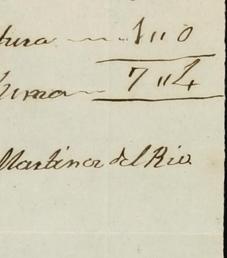 tura — 1 " 0
Suma — 7 " 4
Martinez del Rio